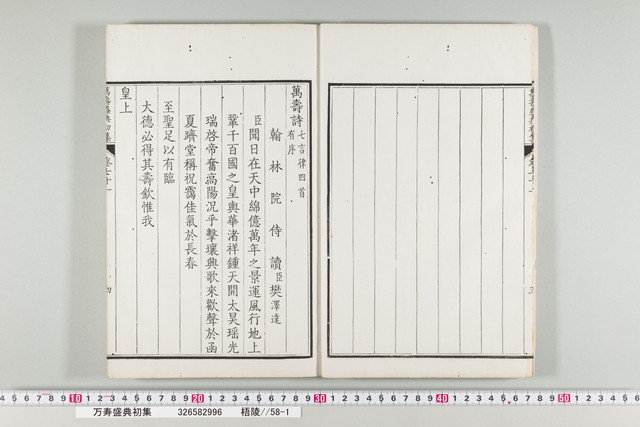 萬壽詩七言律四首
有序
翰林院侍讀臣樊澤達
臣聞日在天中綿億萬年之景運風行地上
鞏千百國之皇輿華渚祥鍾天開太昊瑤光
瑞啓帝奮高陽況乎擊壤興歌來歡聲於函
夏躋堂稱祝靄佳氣於長春
至聖足以有臨
大德必得其壽欽惟我
皇上
四
10 20 30 40 50
万寿盛典初集 326582996 梧陵//58-1